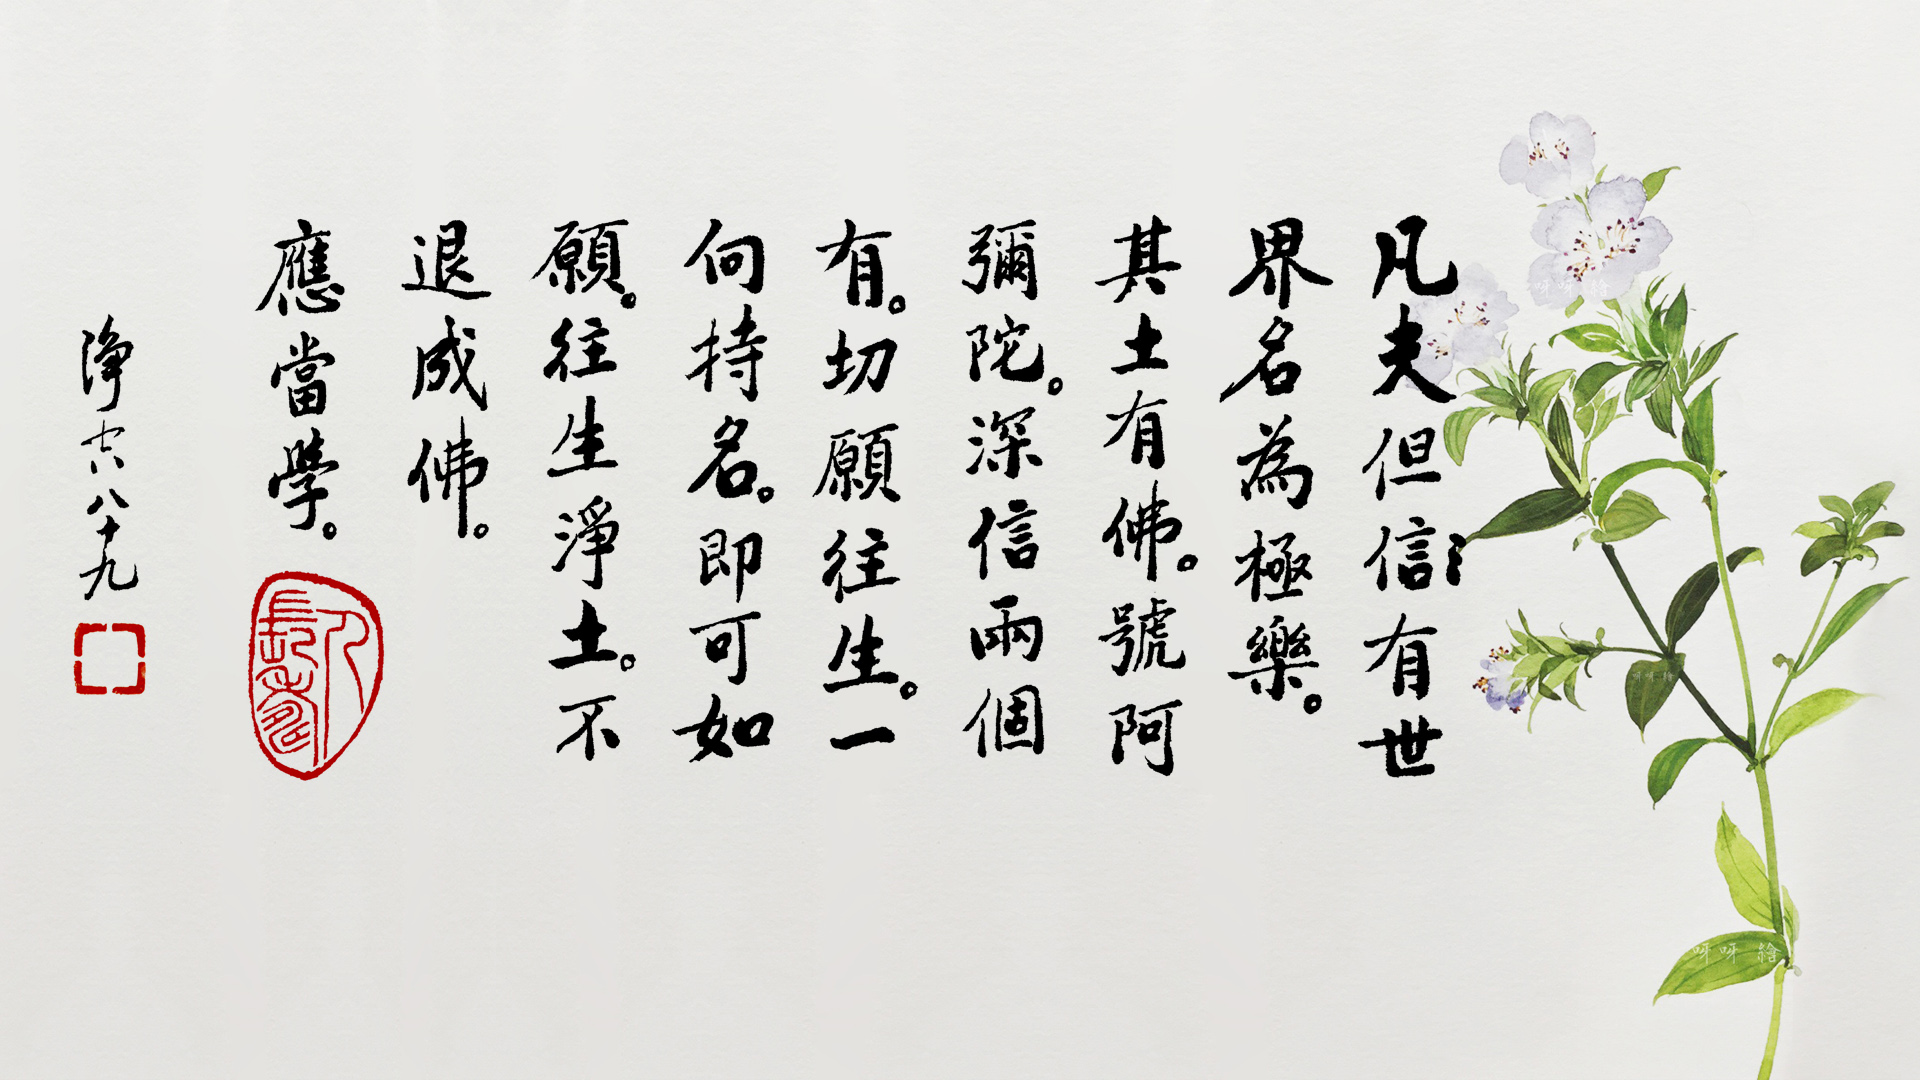 凡夫但信：有世
界名為極樂。
其土有佛。號阿
彌陀。深信兩個
有。切願往生。一
向持名。即可如
願。往生淨土。不
退成佛。
應當學。
淨空八十九
呀呀 繪
呀呀 繪
呀呀 繪